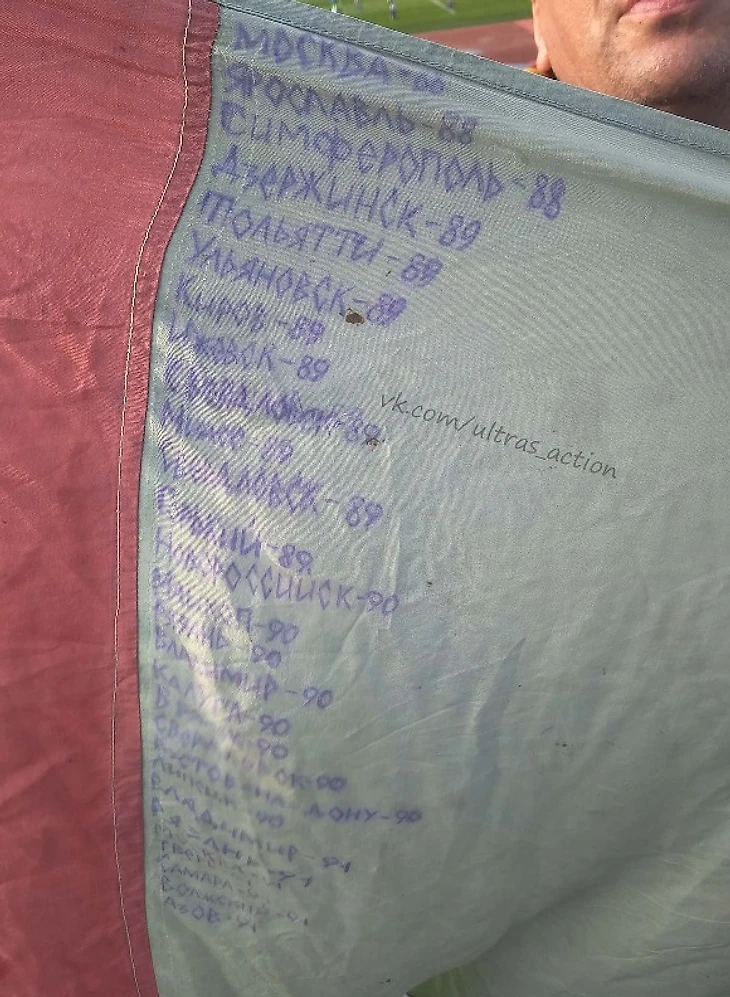 МОСКВА-88
ЯРОСЛАВЛЬ-88
СИМФЕРОПОЛЬ-88
ДЗЕРЖИНСК-89
ТОЛЬЯТТИ-89
УЛЬЯНОВСК-89
КИРОВ-89
ИЖЕВСК-89
СВЕРДЛОВСК-89
-89
СВЕРДЛОВСК-89
-89
НОВОРОССИЙСК-90
-90
РЯЗАНЬ-90
ВЛАДИМИР-90
КАЛУГА-90
-90
-90
РОСТОВ-НА-ДОНУ-90
ЛИПЕЦК-90
ВЛАДИМИР-91
-91
САМАРА-
ВОЛЖСКИЙ-91
АЗОВ-91
vk.com/ultras_action